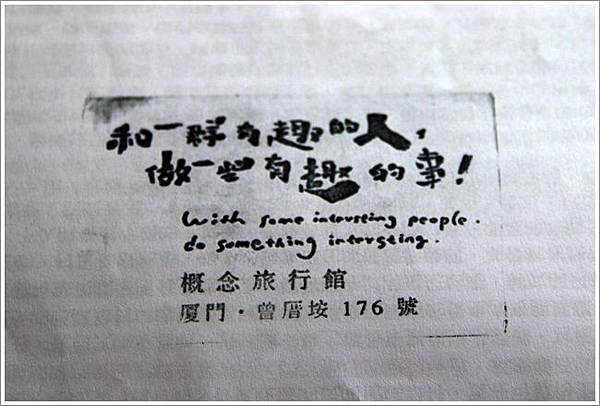 和一群有趣的人，
做一些有趣的事！
With some interesting people.
do something intersting.
概念旅行館
厦門・曾厝垵 176 號